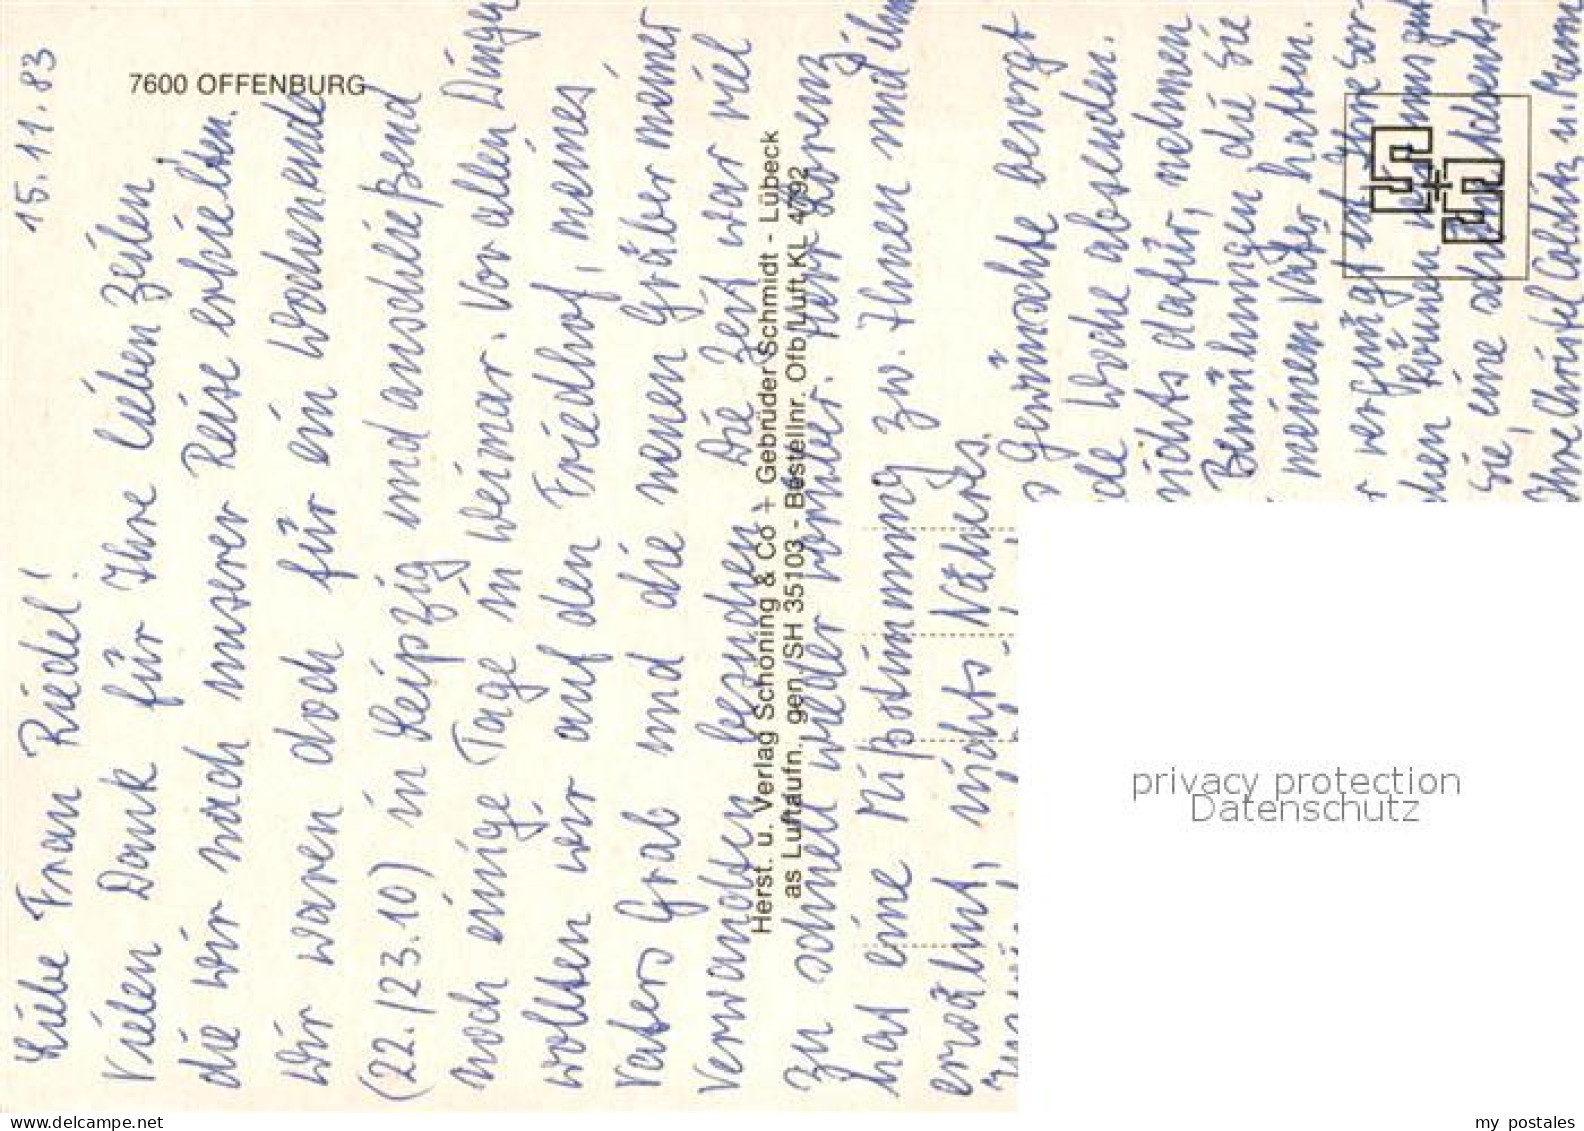 7600 OFFENBURG
15.11.83
Liebe Frau Riedel!
Vielen Dank für Ihre lieben Zeilen,
die wir nach unserer Reise erhielten.
Wir waren doch für ein Wochenende
(22./23.10) in Leipzig und anschließend
noch einige Tage in Weimar. Vor allen Dingen
wollten wir auf den Friedhof, meines
Vaters Grab und die neuen Gräber meiner
Verwandten besuchen. Die Zeit war viel
zu schnell wieder vorüber. Herr Lorenz
hat eine Mißstimmung zw. Ihnen und ihm
erwähnt, nichts Näheres.
Gewünschte besorgt
de Woche absenden.
nichts dafür, nehmen
Bemühungen die Sie
meinem Vater hatten.
vergnügt
können, uns
Sie eine schöne Advents-
Ihre Christel Colditz u. Mann
Herst. u. Verlag Schöning & Co + Gebrüder Schmidt - Lübeck
as Luftaufn. gen. SH 35103 - Bestellnr. Ofb/Luft KL 4792
privacy protection
Datenschutz
www.delcampe.net
my_postales